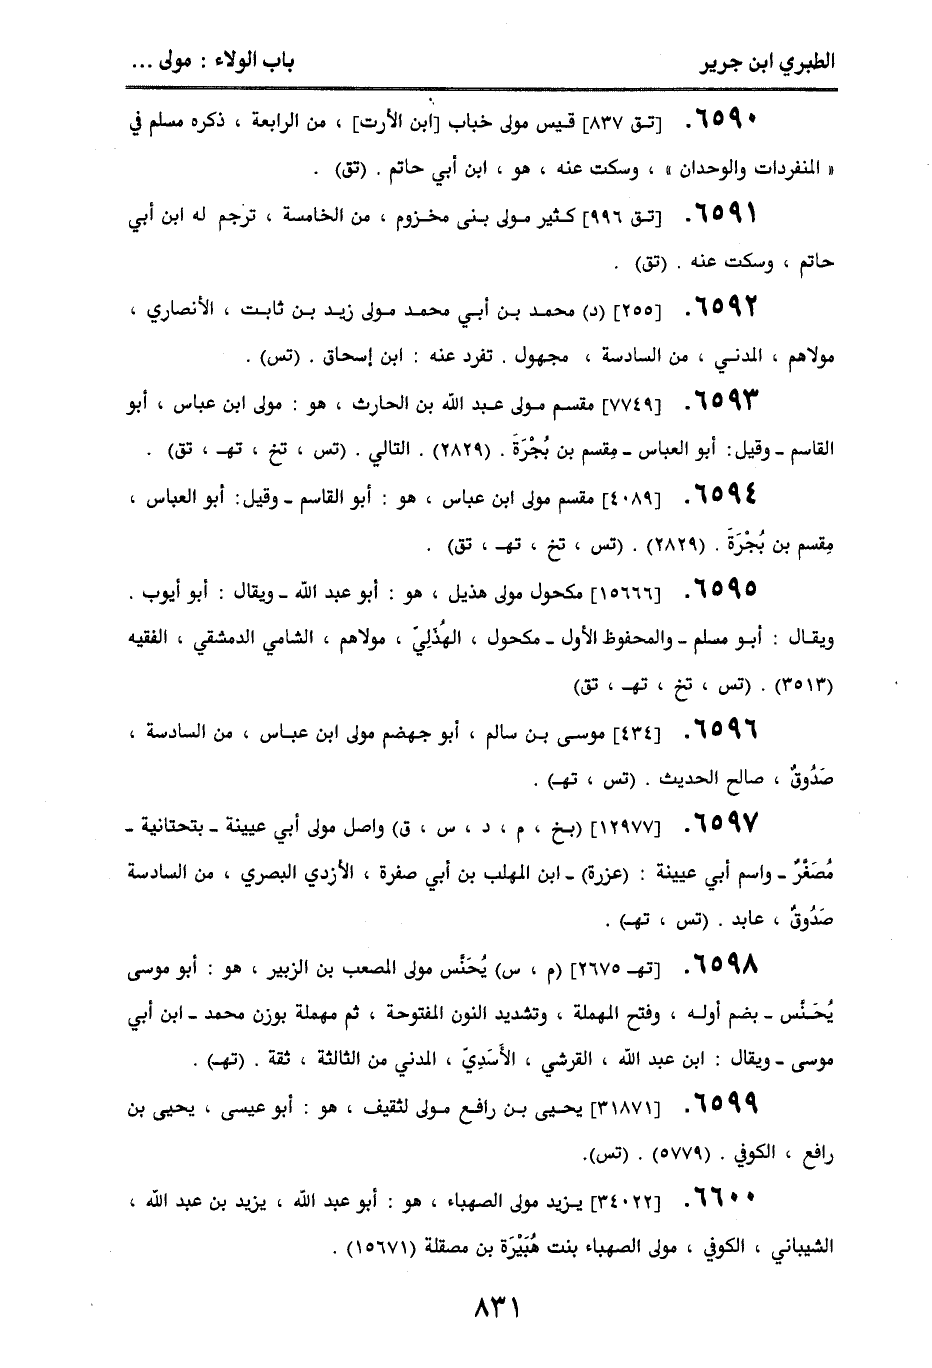 الطبري ابن جرير
باب الولاء : مولى ...
٦٥٩٠. [تـق ٨٣٧] قـيس مولى خباب [ابن الأرت] ، من الرابعة ، ذكره مسلم في
« المنفردات والوحدان » ، وسكت عنه ، هو ، ابن أبي حاتم . (تق) .
٦٥٩١. [تـق ٩٩٦] كـثير مـولى بـنى مخـزوم ، من الخامسة ، ترجم له ابن أبي
حاتم ، وسكت عنه . (تق) .
٦٥٩٢. [٢٥٥] (د) محمـد بـن أبي محمـد مـولى زيـد بـن ثابـت ، الأنصاري ،
مولاهم ، المدنـي ، من السادسة ، مجهول . تفرد عنه : ابن إسحاق . (تس) .
٦٥٩٣. [٧٧٤٩] مقسـم مـولى عـبد الله بن الحارث ، هو : مولى ابن عباس ، أبو
القاسم ـ وقيل: أبو العباس ـ مِقسم بن بُجْرَةَ . (٢٨٢٩) . التالي . (تس ، تخ ، تهـ ، تق) .
٦٥٩٤. [٤٠٨٩] مقسم مولى ابن عباس ، هو : أبو القاسم ـ وقيل: أبو العباس ،
مِقسم بن بُجْرَةَ . (٢٨٢٩) . (تس ، تخ ، تهـ ، تق) .
٦٥٩٥. [١٥٦٦٦] مكحول مولى هذيل ، هو : أبو عبد الله ـ ويقال : أبو أيوب .
ويقـال : أبـو مسلم ـ والمحفوظ الأول ـ مكحول ، الهُذَلِيّ ، مولاهم ، الشامي الدمشقي ، الفقيه
(٣٥١٣) . (تس ، تخ ، تهـ ، تق)
٦٥٩٦. [٤٣٤] موسـى بـن سالم ، أبـو جهضم مولى ابن عبـاس ، من السادسة ،
صَدُوقٌ ، صالح الحديث . (تس ، تهـ) .
٦٥٩٧. [١٢٩٧٧] (بـخ ، م ، د ، س ، ق) واصل مولى أبي عيينة ـ بتحتانية ـ
مُصَغْرٌ ـ واسم أبي عيينة : (عزرة) ـ ابن المهلب بن أبي صفرة ، الأزدي البصري ، من السادسة
صَدُوقٌ ، عابد . (تس ، تهـ) .
٦٥٩٨. [تهـ ٢٦٧٥] (م ، س) يُحَنَّس مولى المصعب بن الزبير ، هو : أبو موسى
يُحَنَّس ـ بضم أوله ، وفتح المهملة ، وتشديد النون المفتوحة ، ثم مهملة بوزن محمد ـ ابن أبي
موسى ـ ويقال : ابن عبد الله ، القرشي ، الأَسَدِيّ ، المدني من الثالثة ، ثقة . (تهـ) .
٦٥٩٩. [٣١٨٧١] يحـيى بـن رافـع مولى لثقيف ، هو : أبو عيسى ، يحيى بن
رافع ، الكوفي . (٥٧٧٩) . (تس).
٦٦٠٠. [٣٤٠٢٢] يـزيد مولى الصهباء ، هو : أبو عبد الله ، يزيد بن عبد الله ،
الشيباني ، الكوفي ، مولى الصهباء بنت هُبَيْرَة بن مصقلة (١٥٦٧١) .
٨٣١